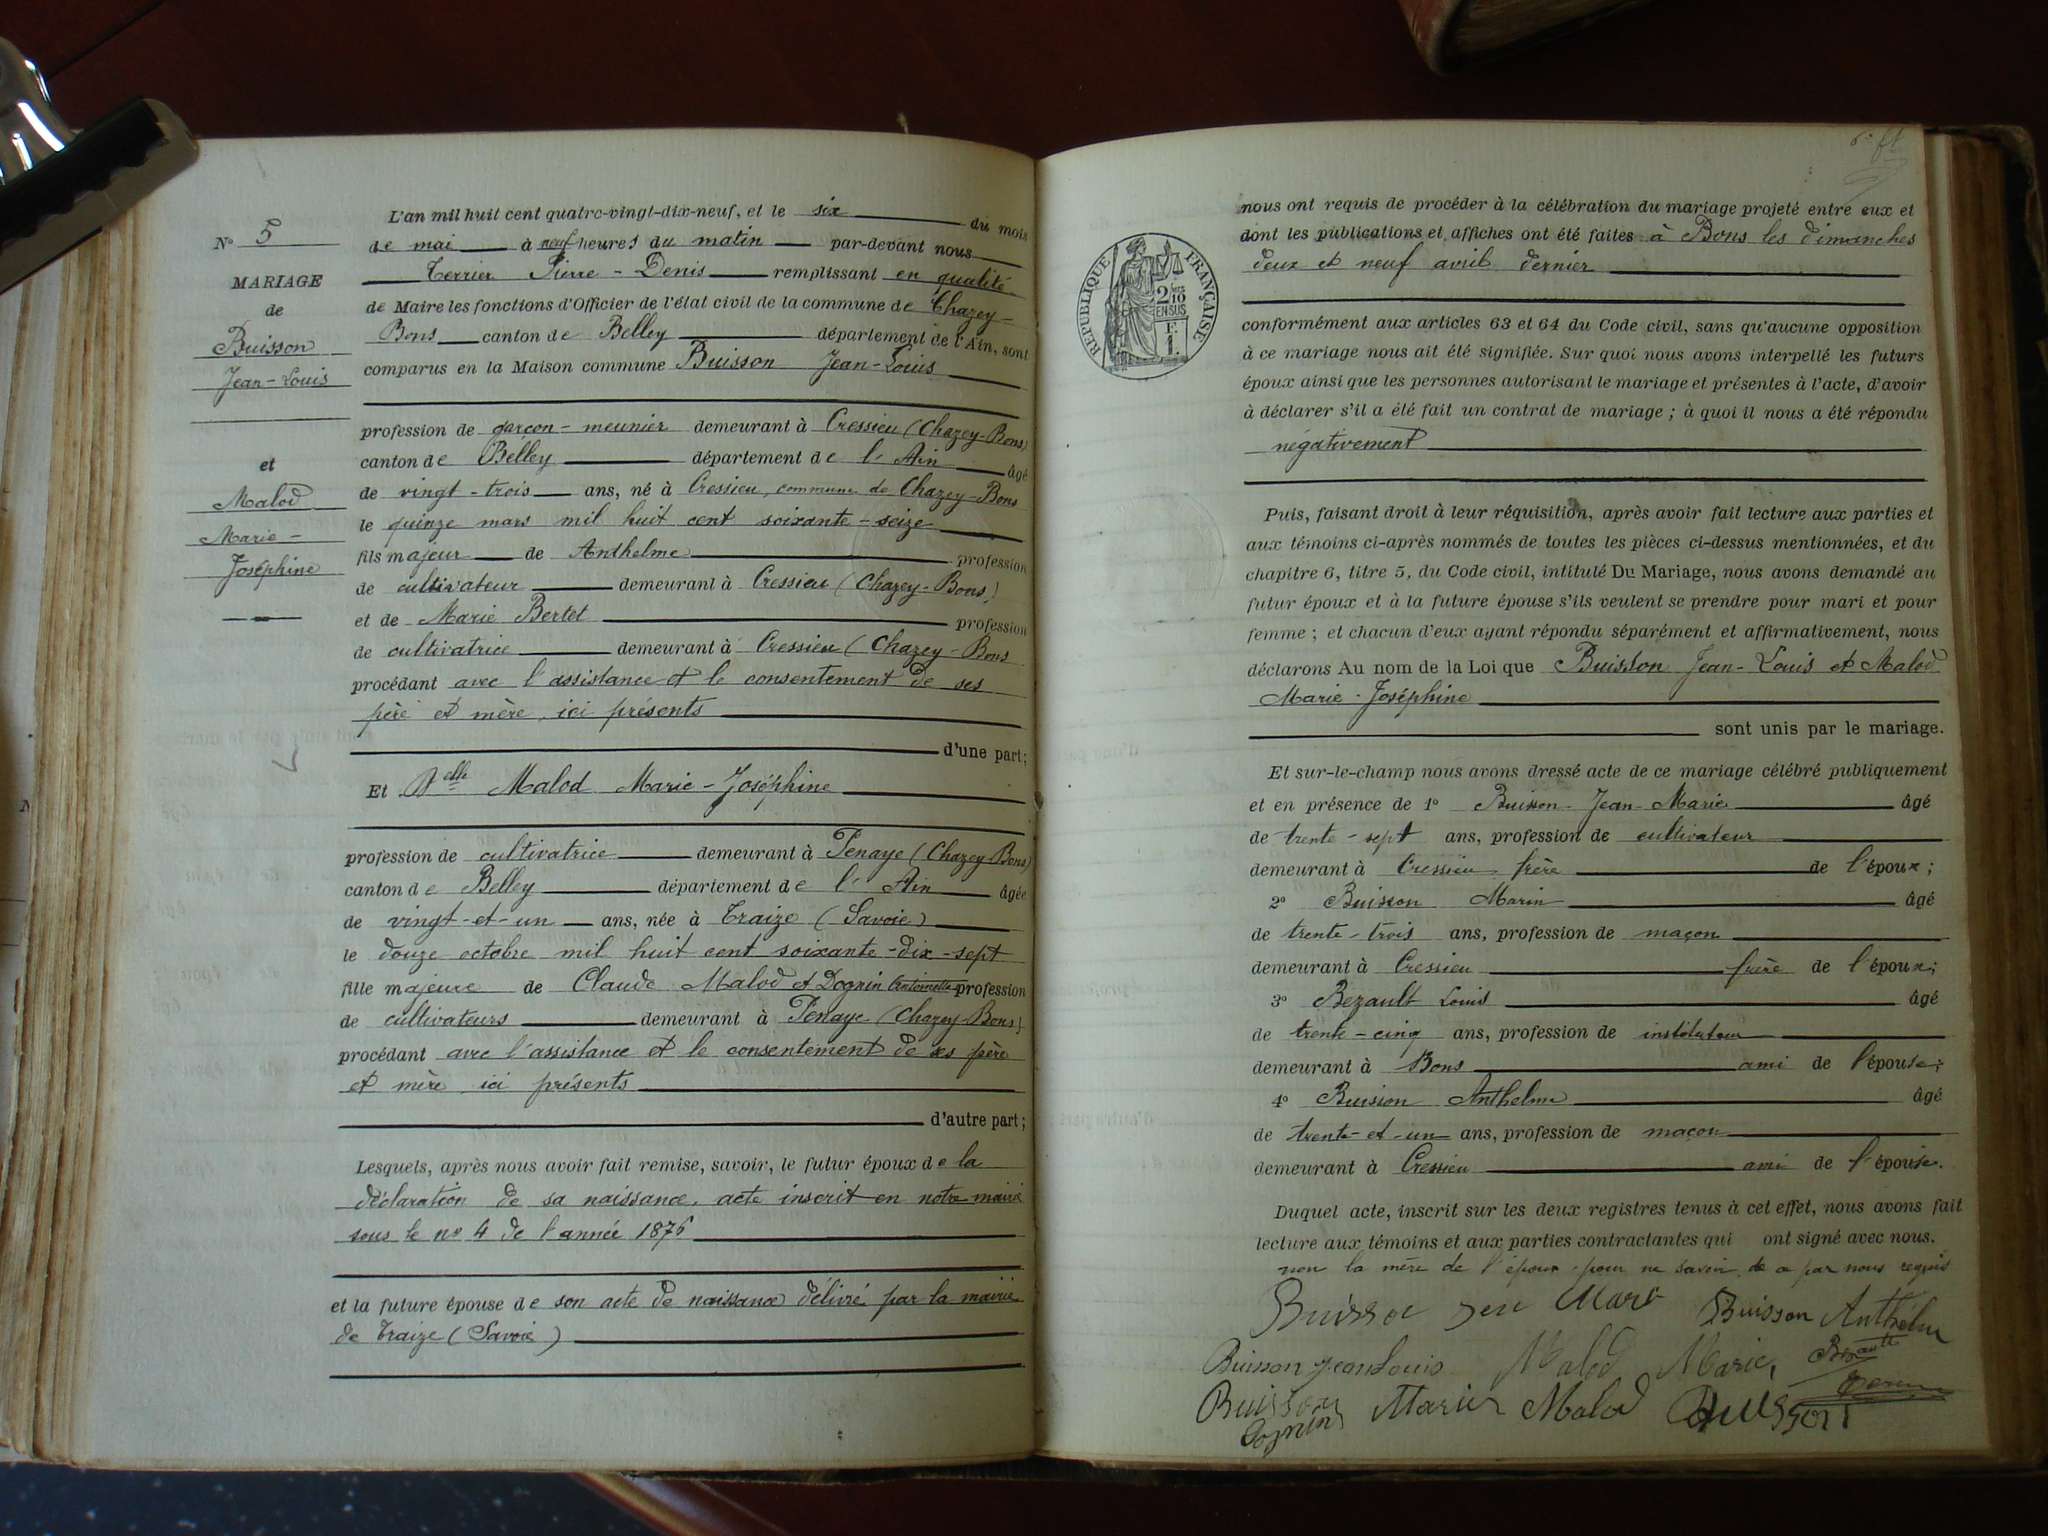 N° 5
MARIAGE
de
Buisson
Jean-Louis
et
Malod
Marie-
Joséphine
L'an mil huit cent quatre-vingt-dix-neuf, et le six du mois
de mai à neuf heures du matin par-devant nous
Terrier Pierre-Denis remplissant en qualité
de Maire les fonctions d'Officier de l'état civil de la commune de Chazey-
Bons canton de Belley département de l'Ain, sont
comparus en la Maison commune Buisson Jean-Louis
profession de garçon-meunier demeurant à Cressieu (Chazey-Bons)
canton de Belley département de l'Ain âgé
de vingt-trois ans, né à Cressieu, commune de Chazey-Bons
le quinze mars mil huit cent soixante-seize
fils majeur de Anthelme profession
de cultivateur demeurant à Cressieu (Chazey-Bons)
et de Marie Bertet profession
de cultivatrice demeurant à Cressieu (Chazey-Bons
procédant avec l'assistance et le consentement de ses
père et mère, ici présents
d'une part;
Et Delle Malod Marie-Joséphine
profession de cultivatrice demeurant à Penaye (Chazey-Bons)
canton de Belley département de l'Ain âgée
de vingt-et-un ans, née à Traize (Savoie)
le douze octobre mil huit cent soixante-dix-sept
fille majeure de Claude Malod et Dognin Antoinette profession
de cultivateurs demeurant à Penaye (Chazey-Bons)
procédant avec l'assistance et le consentement de ses père
et mère, ici présents
d'autre part;
Lesquels, après nous avoir fait remise, savoir, le futur époux de la
déclaration de sa naissance, acte inscrit en notre mairie
sous le no 4 de l'année 1876
et la future épouse de son acte de naissance délivré par la mairie
de Traize (Savoie)
RÉPUBLIQUE FRANÇAISE
2 10
EN SUS
nous ont requis de procéder à la célébration du mariage projeté entre eux et
dont les publications et affiches ont été faites à Bons les dimanches
deux et neuf avril dernier
conformément aux articles 63 et 64 du Code civil, sans qu'aucune opposition
à ce mariage nous ait été signifiée. Sur quoi nous avons interpellé les futurs
époux ainsi que les personnes autorisant le mariage et présentes à l'acte, d'avoir
à déclarer s'il a été fait un contrat de mariage; à quoi il nous a été répondu
négativement
Puis, faisant droit à leur réquisition, après avoir fait lecture aux parties et
aux témoins ci-après nommés de toutes les pièces ci-dessus mentionnées, et du
chapitre 6, titre 5, du Code civil, intitulé Du Mariage, nous avons demandé au
futur époux et à la future épouse s'ils veulent se prendre pour mari et pour
femme; et chacun d'eux ayant répondu séparément et affirmativement, nous
déclarons Au nom de la Loi que Buisson Jean-Louis et Malod
Marie-Joséphine
sont unis par le mariage.
Et sur-le-champ nous avons dressé acte de ce mariage célébré publiquement
et en présence de 1° Buisson Jean-Marie âgé
de trente-sept ans, profession de cultivateur
demeurant à Cressieu frère de l'époux;
2° Buisson Marin âgé
de trente-trois ans, profession de maçon
demeurant à Cressieu frère de l'époux;
3° Bezault Louis âgé
de trente-cinq ans, profession de instituteur
demeurant à Bons ami de l'épouse;
4° Buisson Anthelme âgé
de trente-et-un ans, profession de maçon
demeurant à Cressieu ami de l'épouse.
Duquel acte, inscrit sur les deux registres tenus à cet effet, nous avons fait
lecture aux témoins et aux parties contractantes qui ont signé avec nous.
non la mère de l'époux pour ne savoir, de a par nous requis
Buisson Anthelm
Buisson Jean Louis Malod Marie, Bezault
Buisson Marin Malod Buisson
Dognin